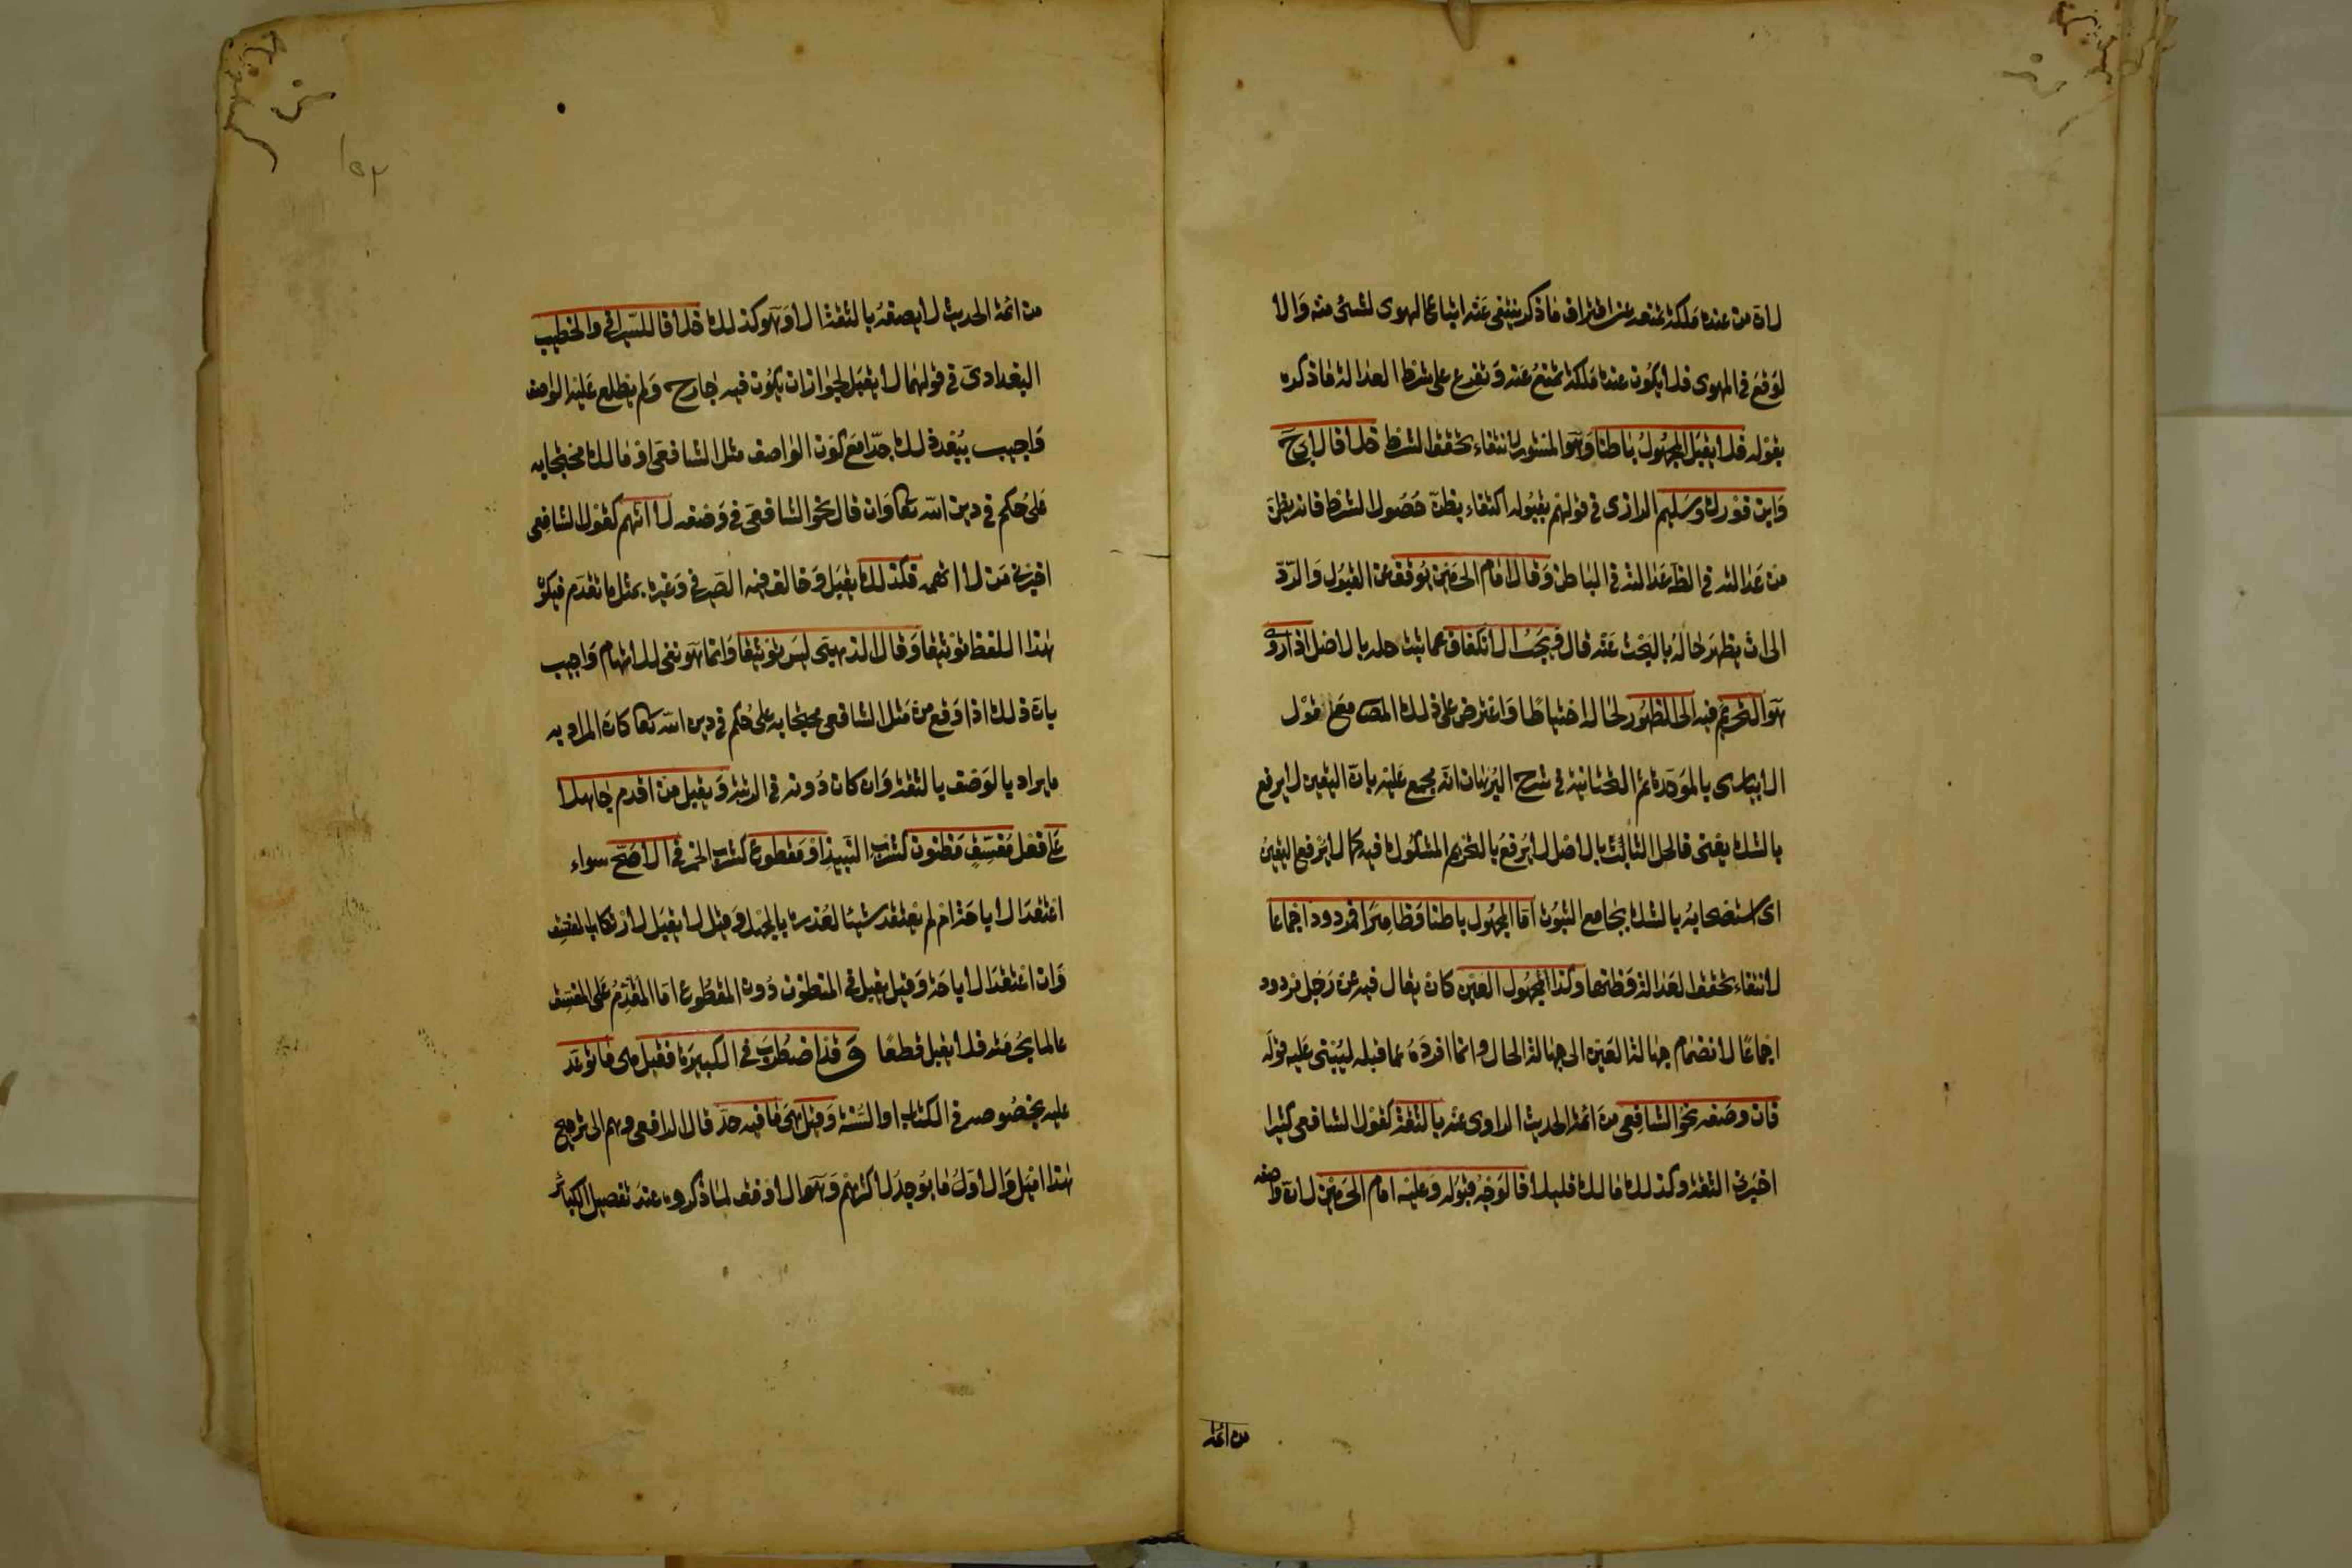 لان من عنده ملكة تمنعه عن اقتراف ما ذكر ينتفى عنه اتباع الهوى لشئ منه والا
لوقع في المهوى فلا يكون عنده ملكة تمنع عنه وتفرع على شرط العدالة ما ذكره
بقوله فلا يقبل المجهول باطنا وهو المستور لانتفاء تحقق الشرط خلافا لابى ح
وابن فورك وسليم الرازى في قولهم بقبوله اكتفاء بظن حصول الشرط فانه يظن
من عدالته في الظ عدالته في الباطن وقال امام الحرمين يوقف عن القبول والرد
الى ان يظهر حاله بالبحث عنه قال ويجب الانكفاف عما ثبت حله بالاصل اذا روى
هو التحريم فيه الى الظهور لحاله احتياطا واعترض على ذلك المص مع قول
الابيارى بالموحدة ثم التحتانية في شرح البرهان انه مجمع عليه بان اليقين لا يرفع
بالشك يعنى فالحل الثابت بالاصل لا يرفع بالتحريم المشكوك فيه كما لا يرفع اليقين
اى استصحابه بالشك بجامع الثبوت اما المجهول باطنا وظاهرا فمردود اجماعا
لانتفاء تحقق العدالة وظنها وكذا المجهول العين كان يقال فيه عن رجل مردود
اجماعا لانضمام جهالة العين الى جهالة الحال وانما افرده عما قبله ليبنى عليه قوله
فان وصفه نحو الشافعى من ائمة الحديث الراوى عنه بالثقة كقول الشافعى كثيرا
اخبرنى الثقة وكذلك مالك قليلا فالوجه قبوله وعليه امام الحرمين لان واصفه
من ائمة
١٥٣
من ائمة الحديث لا يصفه بالثقة الا وهو كذلك خلافا للصيرافى والخطيب
البغدادى في قولهما لا يقبل لجواز ان يكون فيه جارح ولم يطلع عليه الواصف
واجيب ببعد ذلك جدا مع كون الواصف مثل الشافعى او مالك محتجا به
على حكم في دين الله تعا وان قال نحو الشافعى في وصفه لا اتهم كقول الشافعى
اخبرنى من لا اتهمه فكذلك يقبل وخالف فيه الصيرفى وغيره بمثل ما تقدم فيكون
هذا اللفظ توثيقا وقال الذهبى ليس توثيقا وانما هو نفى للاتهام واجيب
بان ذلك اذا وقع من مثل الشافعى محتجا به على حكم في دين الله تعا كان المراد به
ما يراد بالوصف بالثقة وان كان دونه في الرتبة ويقبل من اقدم جاهلا
على فعل مفسق مظنون كشرب النبيذ او مقطوع كشرب الخمر في الاصح سواء
اعتقد الاباحة ام لم يعتقد شيئا لعذره بالجهل وقيل لا يقبل لارتكاب المفسق
وان اعتقد الاباحة وقيل يقبل في المظنون دون المقطوع اما المقدم على المفسق
عالما بحرمته فلا يقبل قطعا وقد اضطرب في الكبيرة فقيل هى ما توعد
عليه بخصوصه في الكتاب او السنة وقيل هى ما فيه حد قال الرافعى وهم الى ترجيح
هذا اميل والاول ما يوجد لاكثرهم وهو الاوفق لما ذكروه عند تفصيل الكبائر